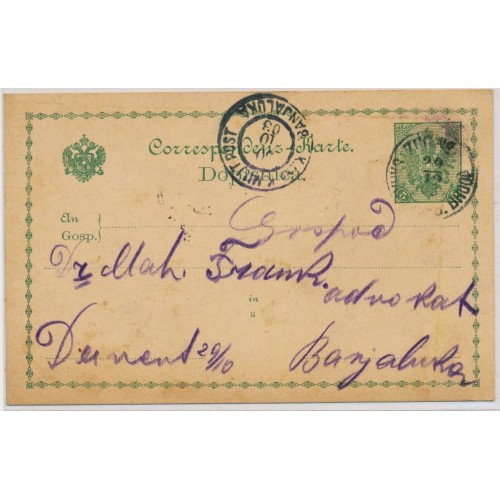 K. und K. MILIT. POST
BANJALUKA
10
03
Correspondenz-Karte.
Dopisnica.
An
Gosp.
Gospod
Dr Mah. Frank.
advokat
in
u
Dervent 29/10
Banjaluka